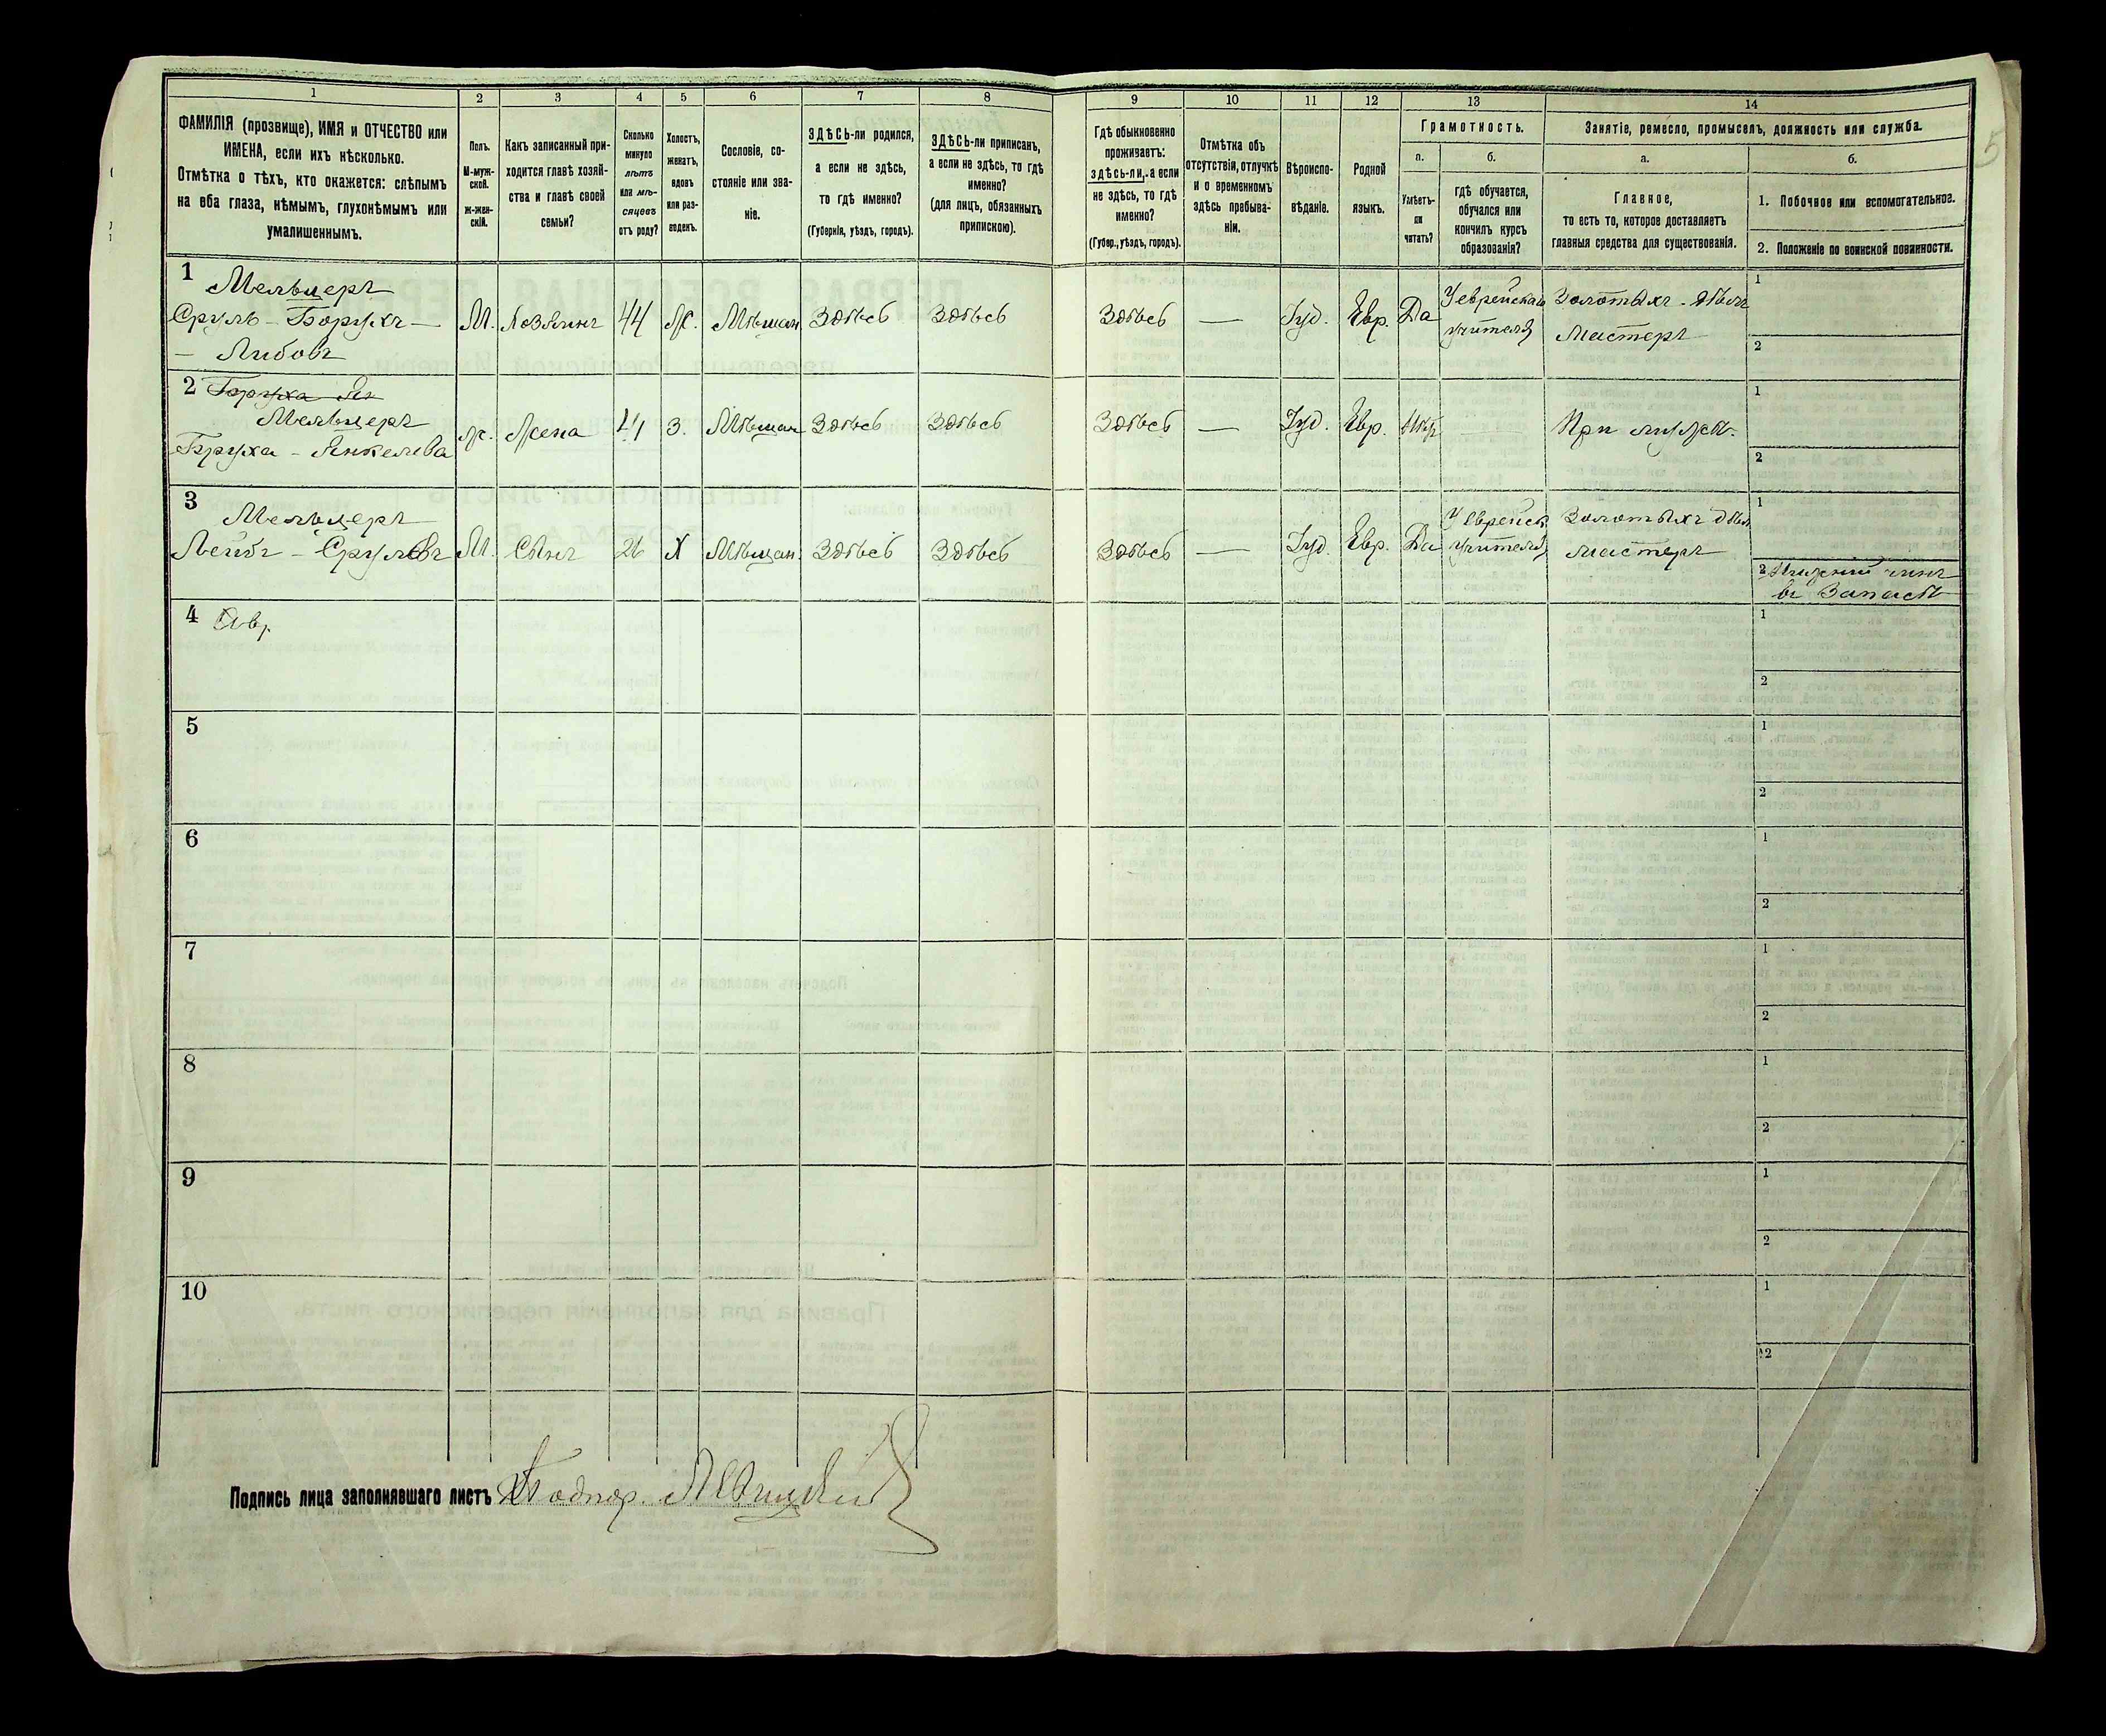 1
2
3
4
5
6
7
8
ФАМИЛІЯ (прозвище), ИМЯ и ОТЧЕСТВО или
ИМЕНА, если ихъ нѣсколько.
Отмѣтка о тѣхъ, кто окажется: слѣпымъ
на оба глаза, нѣмымъ, глухонѣмымъ или
умалишеннымъ.
Полъ.
М-муж-
ской.
ж-жен-
скій.
Какъ записанный при-
ходится главѣ хозяй-
ства и главѣ своей
семьи?
Сколько
минуло
лѣтъ
или мѣ-
сяцевъ
отъ роду?
Холостъ,
женатъ,
вдовъ
или раз-
веденъ.
Сословіе, со-
стояніе или зва-
ніе.
ЗДѢСЬ-ли родился,
а если не здѣсь,
то гдѣ именно?
(Губернія, уѣздъ, городъ).
ЗДѢСЬ-ли приписанъ,
а если не здѣсь, то гдѣ
именно?
(для лицъ, обязанныхъ
припискою).
9
10
11
12
13
14
Гдѣ обыкновенно
проживаетъ:
здѣсь-ли, а если
не здѣсь, то гдѣ
именно?
(Губер., уѣздъ, городъ).
Отмѣтка объ
отсутствіи, отлучкѣ
и о временномъ
здѣсь пребыва-
ніи.
Вѣроиспо-
вѣданіе.
Родной
языкъ.
Грамотность.
а.
Умѣетъ-
ли
читать?
б.
гдѣ обучается,
обучался или
кончилъ курсъ
образованія?
Занятіе, ремесло, промыселъ, должность или служба.
а.
Главное,
то есть то, которое доставляетъ
главныя средства для существованія.
б.
1. Побочное или вспомогательное.
2. Положеніе по воинской повинности.
5
1 Мельцеръ
Сруль - Борухъ -
- Либовъ
М.
Хозяинъ
44
Ж.
Мѣщан
Здѣсь
Здѣсь
Здѣсь
—
Іуд.
Евр.
Да
У еврейскаго
учителя
Золотыхъ - дѣлъ
мастеръ
1
2
2 Бруха Ян
Мельцеръ
Бруха - Янкелева
ж.
Жена
44
З.
Мѣщан
Здѣсь
Здѣсь
Здѣсь
—
Іуд.
Евр.
Нѣтъ
При мужѣ.
1
2
3
Мельцеръ
Лейбъ - Срулевъ
М.
Сынъ
26
Х
Мѣщан.
Здѣсь
Здѣсь
Здѣсь
—
Іуд.
Евр.
Да
У еврейск.
учителя
Золотыхъ дѣлъ
мастеръ
1
2 Нижній чинъ
въ Запасѣ
4 Авр.
1
2
5
1
2
6
1
2
7
1
2
8
1
2
9
1
2
10
1
2
Подпись лица заполнявшаго листъ Подпор.